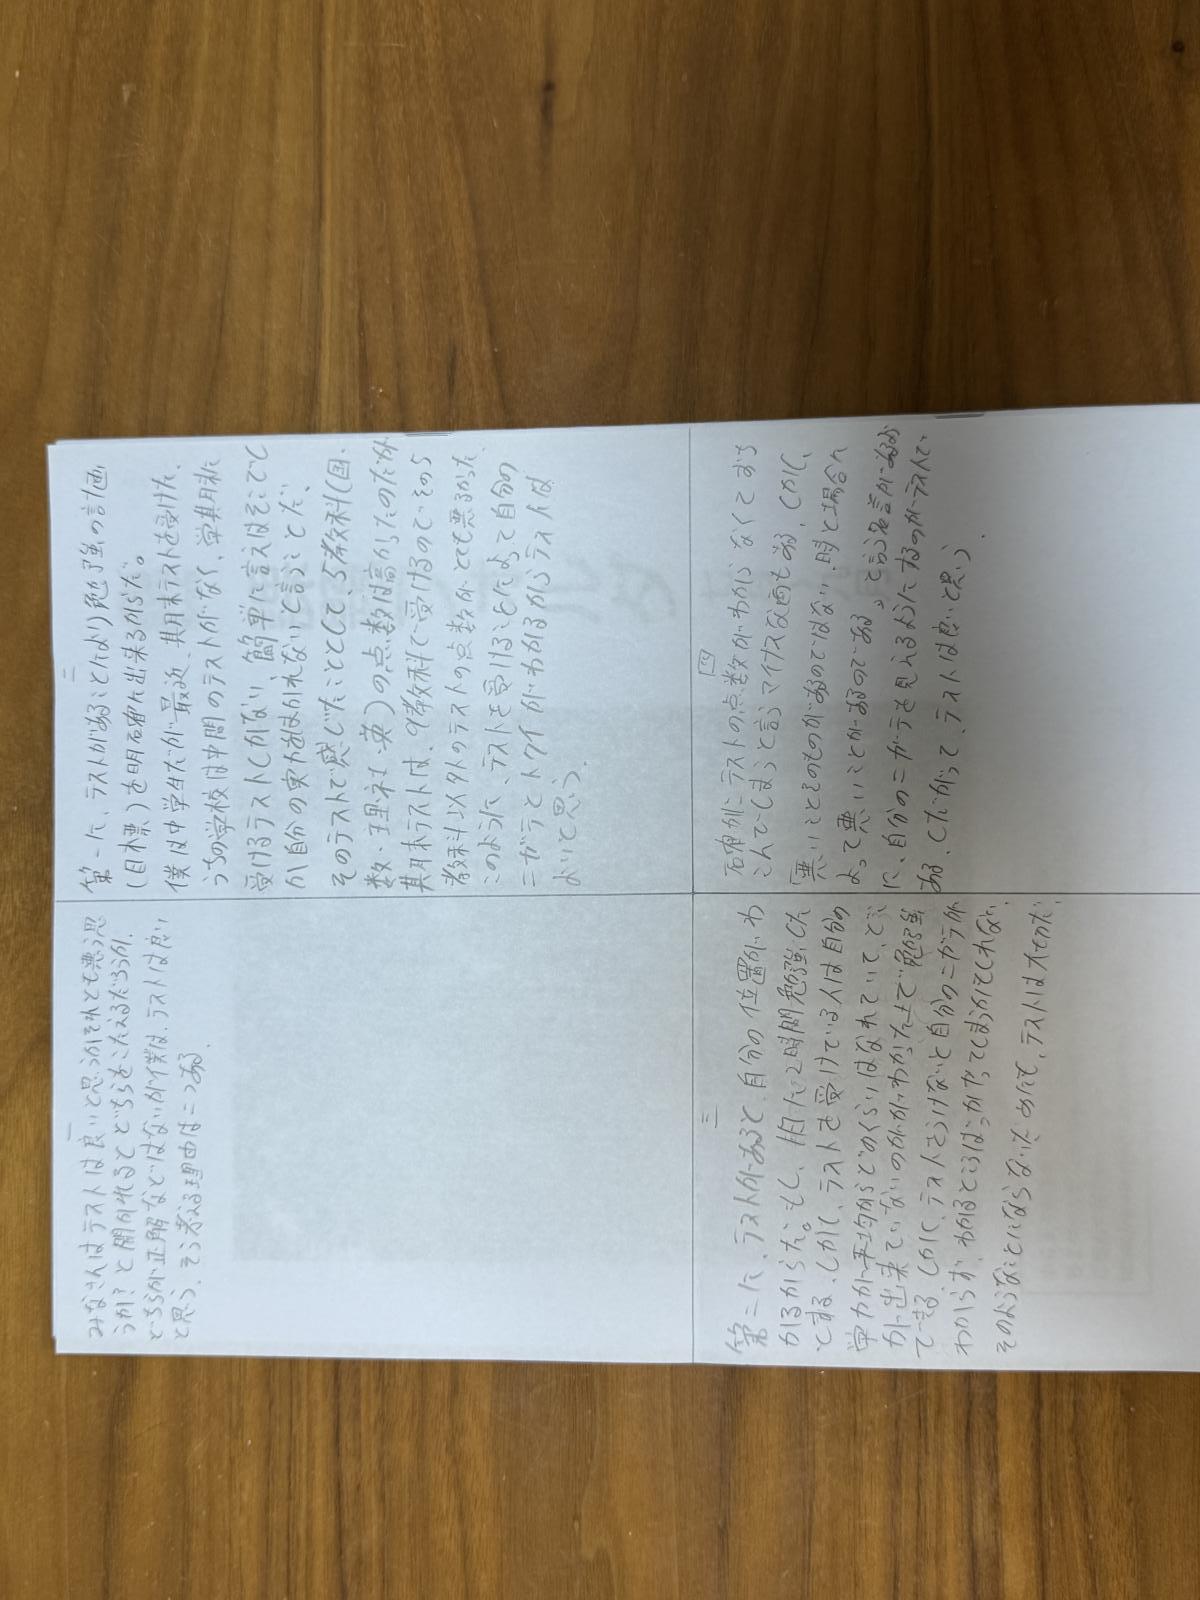 一
みなさんはテストは良いと思うかそれとも悪う思
うか?と聞かれるとどちらをこたえるだろうか。
どちらが正解などはないが僕は、テストは良い
と思う。そう考える理由は二つある。
二
第一に、テストがあることにより勉強の計画
(目標)を明確に出来るからだ。
僕は中学生だが最近、期末テストを受けた。
うちの学校は中間のテストがなく、学期末に
受けるテストしかない、簡単に言えばそこでし
か自分の実力をはかれないと言うことだ、
そのテストで感じたこととして、5教科(国.
数・理・社・英)の点数は高かったのだが
期末テストは、9教科で受けるので、その5
教科以外のテストの点数がとても悪るかった
このように、テストを受けることによって自分の
ニガテとトクイがわかるからテストは
よいと思う。
三
第二に、テストがあると、自分の位置がわ
かるからだ。もし、1日に2時間勉強した
とする。しかして、テストを受けている人は自分の
学力が平均からどのくらいはなれていて、どこ
が出来ていないのかがわかった上で勉強が
できる。しかして、テストをうけないと自分のニガテが
わからず、わかるところばっかだってしまうかもしれない、
そのようなことにならないためにも、テストは大切だ。
四
確かに、テストの点数がわからなくておち
こんでしまうと言うマイナスな面もある。しかして、
「悪いことそのものがあるのではない、時と場合に
よって悪いことがあるのである。」と言う名言があるよう
に、自分のニガテを見えるようにするのがテストで
ある。したがって、テストは良いと思う。